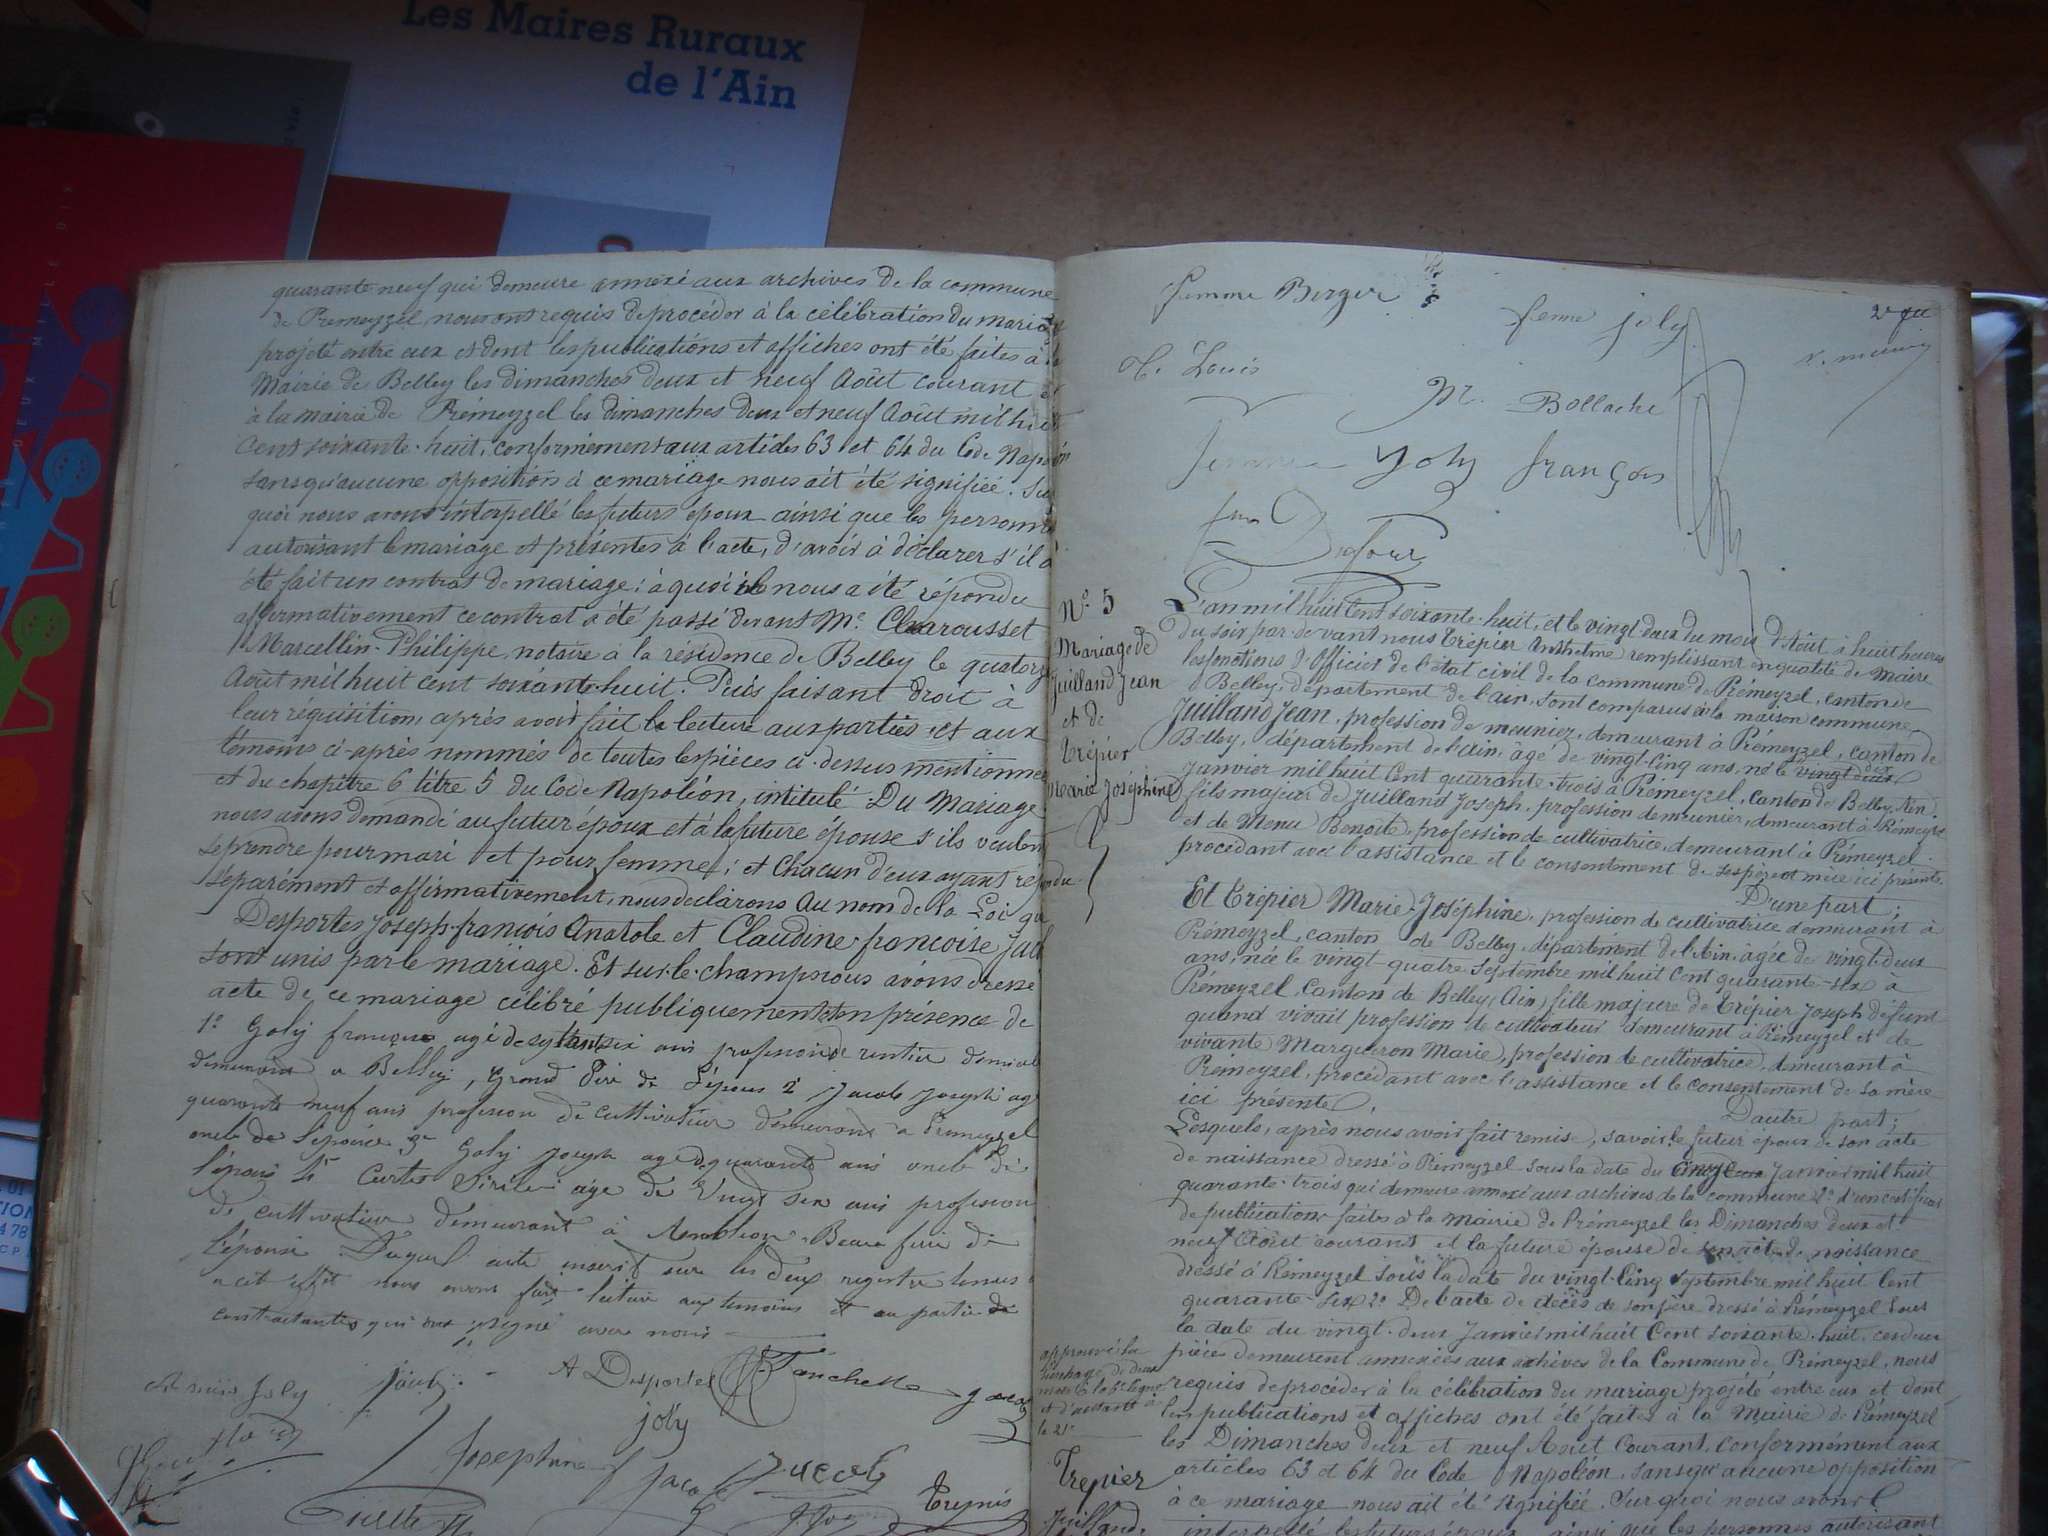 Les Maires Ruraux
de l'Ain
quarante neuf qui demeure annexé aux archives de la commune
de Prémeyzel, nous ont requis de procéder à la célébration du mariage
projeté entre eux et dont les publications et affiches ont été faites à la
Mairie de Belley les dimanches deux et neuf Août courant et
à la mairie de Prémeyzel les dimanches deux et neuf Août mil huit
cent soixante-huit, conformément aux articles 63 et 64 du Code Napoléon
sans qu'aucune opposition à ce mariage nous ait été signifiée. Sur
quoi nous avons interpellé les futurs époux ainsi que les personnes
autorisant le mariage et présentes à l'acte, d'avoir à déclarer s'il a
été fait un contrat de mariage; à quoi il nous a été répondu
affirmativement ce contrat a été passé devant Me Charousset
Marcellin-Philippe, notaire à la résidence de Belley le quatorze
Août mil huit cent soixante-huit. Puis faisant droit à
leur réquisition, après avoir fait la lecture aux parties et aux
témoins ci-après nommés de toutes les pièces ci-dessus mentionnées
et du chapitre 6 titre 5 du Code Napoléon, intitulé Du Mariage
nous avons demandé au futur époux et à la future épouse s'ils veulent
se prendre pour mari et pour femme; et chacun d'eux ayant répondu
séparément et affirmativement, nous déclarons Au nom de la Loi que
Desportes Joseph-françois Anatole et Claudine-françoise Jac
sont unis par le mariage. Et sur-le-champ nous avons dressé
acte de ce mariage célébré publiquement et en présence de
1° Goly françois agé de ans profession de rentier
demeurant a Belley, Grand Père de l'époux 2 Jacob Joseph agé
quarante neuf ans profession de cultivateur demeurant a Premeyzel
oncle de l'épouse 3e Goly Joseph age de quarante ans oncle de
l'époux 4e Curtet agé de vingt six ans profession
de cultivateur demeurant à Beau frère de
l'épouse Duquel acte inscrit sur les deux registre tenus
a cet effet nous avons fait lecture aux temoins et au partie
contractantes qui ont signé avec nous
joly A Desportes
joly
Josephine Jacob
femme Berger
femme joly
C. Louis
M. Bollache
Joly françois
Dufour
N° 5
Mariage de
Juilland Jean
et de
Trépier
Marie Joséphine
L'an mil huit cent soixante-huit, et le vingt-deux du mois d'Août à huit heures
du soir par-devant nous Trépier Anthelme remplissant en qualité de Maire
les fonctions d'Officier de l'état civil de la commune de Prémeyzel, canton de
Belley, département de l'ain, sont comparus à la maison commune,
Juilland Jean, profession de meunier, demeurant à Prémeyzel, canton de
Belley, département de l'ain, âgé de vingt-cinq ans, né le
janvier mil huit cent quarante-trois à Prémeyzel, canton de Belley, Ain.
fils majeur de Juilland Joseph, profession de meunier, demeurant à Prémeyzel
et de Menu Benoîte, profession de cultivatrice, demeurant à Prémeyzel.
procédant avec l'assistance et le consentement de ses père et mère ici présents.
D'une part;
Et Trépier Marie-Joséphine, profession de cultivatrice demeurant à
Prémeyzel, canton de Belley, département de l'Ain, agée de vingt-deux
ans, née le vingt quatre Septembre mil huit cent quarante-six à
Prémeyzel, canton de Belley, (Ain) fille majeure de Trépier Joseph défunt
quand vivait profession de cultivateur demeurant à Prémeyzel et de
vivante Margueron Marie, profession de cultivatrice, demeurant à
Prémeyzel, procédant avec l'assistance et le consentement de sa mère
ici présente.
D'autre part;
Lesquels, après nous avoir fait remise, savoir le futur époux de son acte
de naissance dressé à Prémeyzel sous la date du Janvier mil huit
quarante-trois qui demeure annexé aux archives de la commune 2° d'un certificat
de publication faites à la Mairie de Prémeyzel les Dimanches deux et
neuf Août courant et la future épouse de son acte de naissance
dressé à Prémeyzel sous la date du vingt-cinq septembre mil huit cent
quarante-six 2° De l'acte de décès de son père dressé à Prémeyzel sous
la date du vingt-deux Janvier mil huit cent soixante-huit, ces deux
pièces demeurent annexées aux archives de la Commune de Prémeyzel, nous
requis de procéder à la célébration du mariage projeté entre eux et dont
les publications et affiches ont été faites à la Mairie de Prémeyzel
les Dimanches deux et neuf Août courant, conformément aux
articles 63 et 64 du Code Napoléon, sans qu'aucune opposition
à ce mariage nous ait été signifiée. Sur quoi nous avons
interpellé les futurs époux, ainsi que les personnes autorisant
approuvé la
de deux
mots à la 6e ligne
et d'autant à
la 21e
Trepier
Juilland